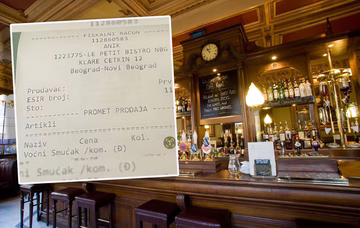 112860583
FISKALNI RAČUN
112860583
ANIK
1223775-LE PETIT BISTRO NBG
KLARE CETKIN 12
Beograd-Novi Beograd
Prodavac: Prv
ESIR broj: 11
Sto:
PROMET PRODAJA
Artikli
Naziv Cena Kol.
Voćni Smućak /kom. (Đ)
ni Smućak /kom. (Đ)